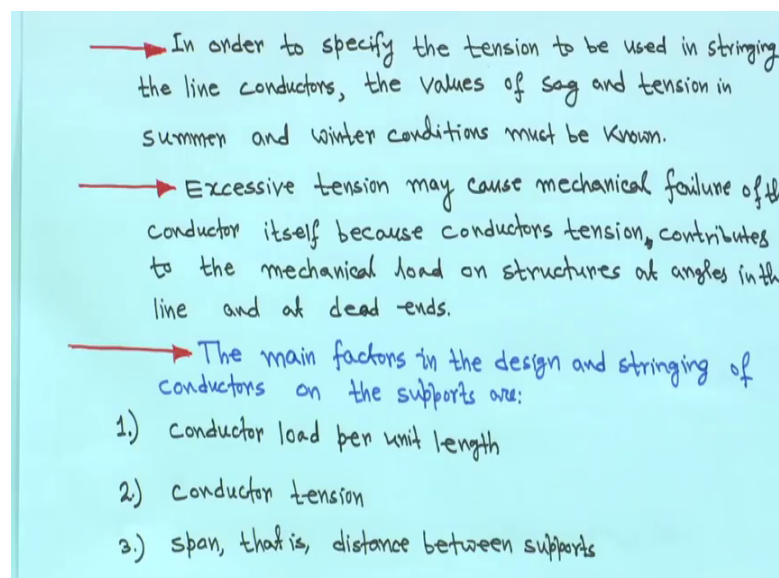 In order to specify the tension to be used in stringing
the line conductors, the values of sag and tension in
summer and winter conditions must be known.
Excessive tension may cause mechanical failure of th
conductor itself because conductors tension, contributes
to the mechanical load on structures at angles in th
line and at dead-ends.
The main factors in the design and stringing of
conductors on the supports are:
1.) conductor load per unit length
2.) conductor tension
3.) span, that is, distance between supports